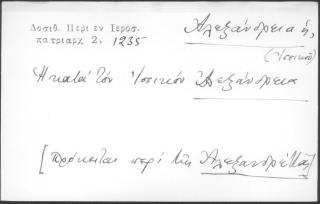 Δοσιθ. Περι εν Ιεροσ.
πατριαρχ 2, 1235
Ἀλεξάνδρεια ἡ,
(Ἰσσικόν)
Ἡ κατά τόν Ἰσσικόν Ἀλεξάνδρεια
[Πρόκειται περί τῆς Ἀλεξανδρέττας]